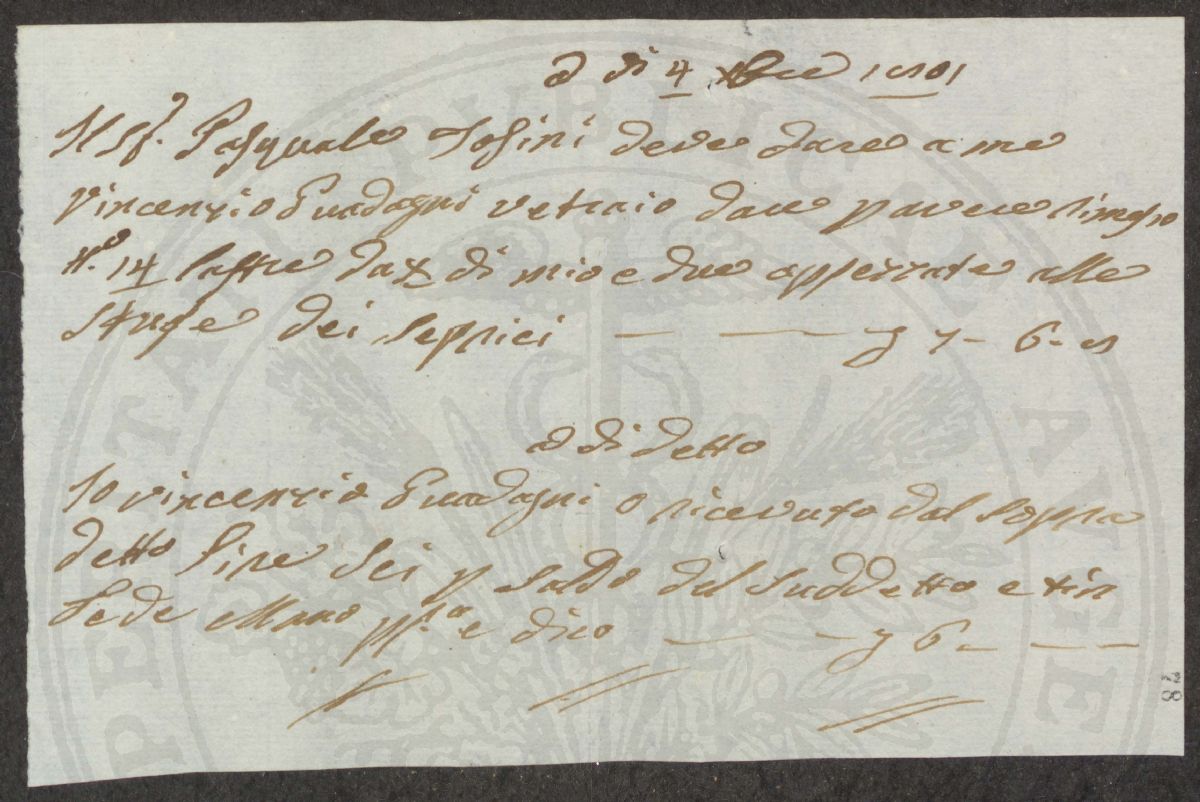 A di 4 Xbre 1801
Il Sr. Pasquale Tosini deve dare a me
Vincenzio Guadagni vetraio dare p avere rimesso
N.o 14 lastre da di mio e due apperzate alle
stufe dei Seppici — — 7 - 6 - 8
A di detto
Io Vincenzio Guadagni o ricevuto dal soppra
detto lire sei p saldo del suddetto e in
fede Mano pp.a e dico — - 6 - — —
28
PIETATI PUBLICAE